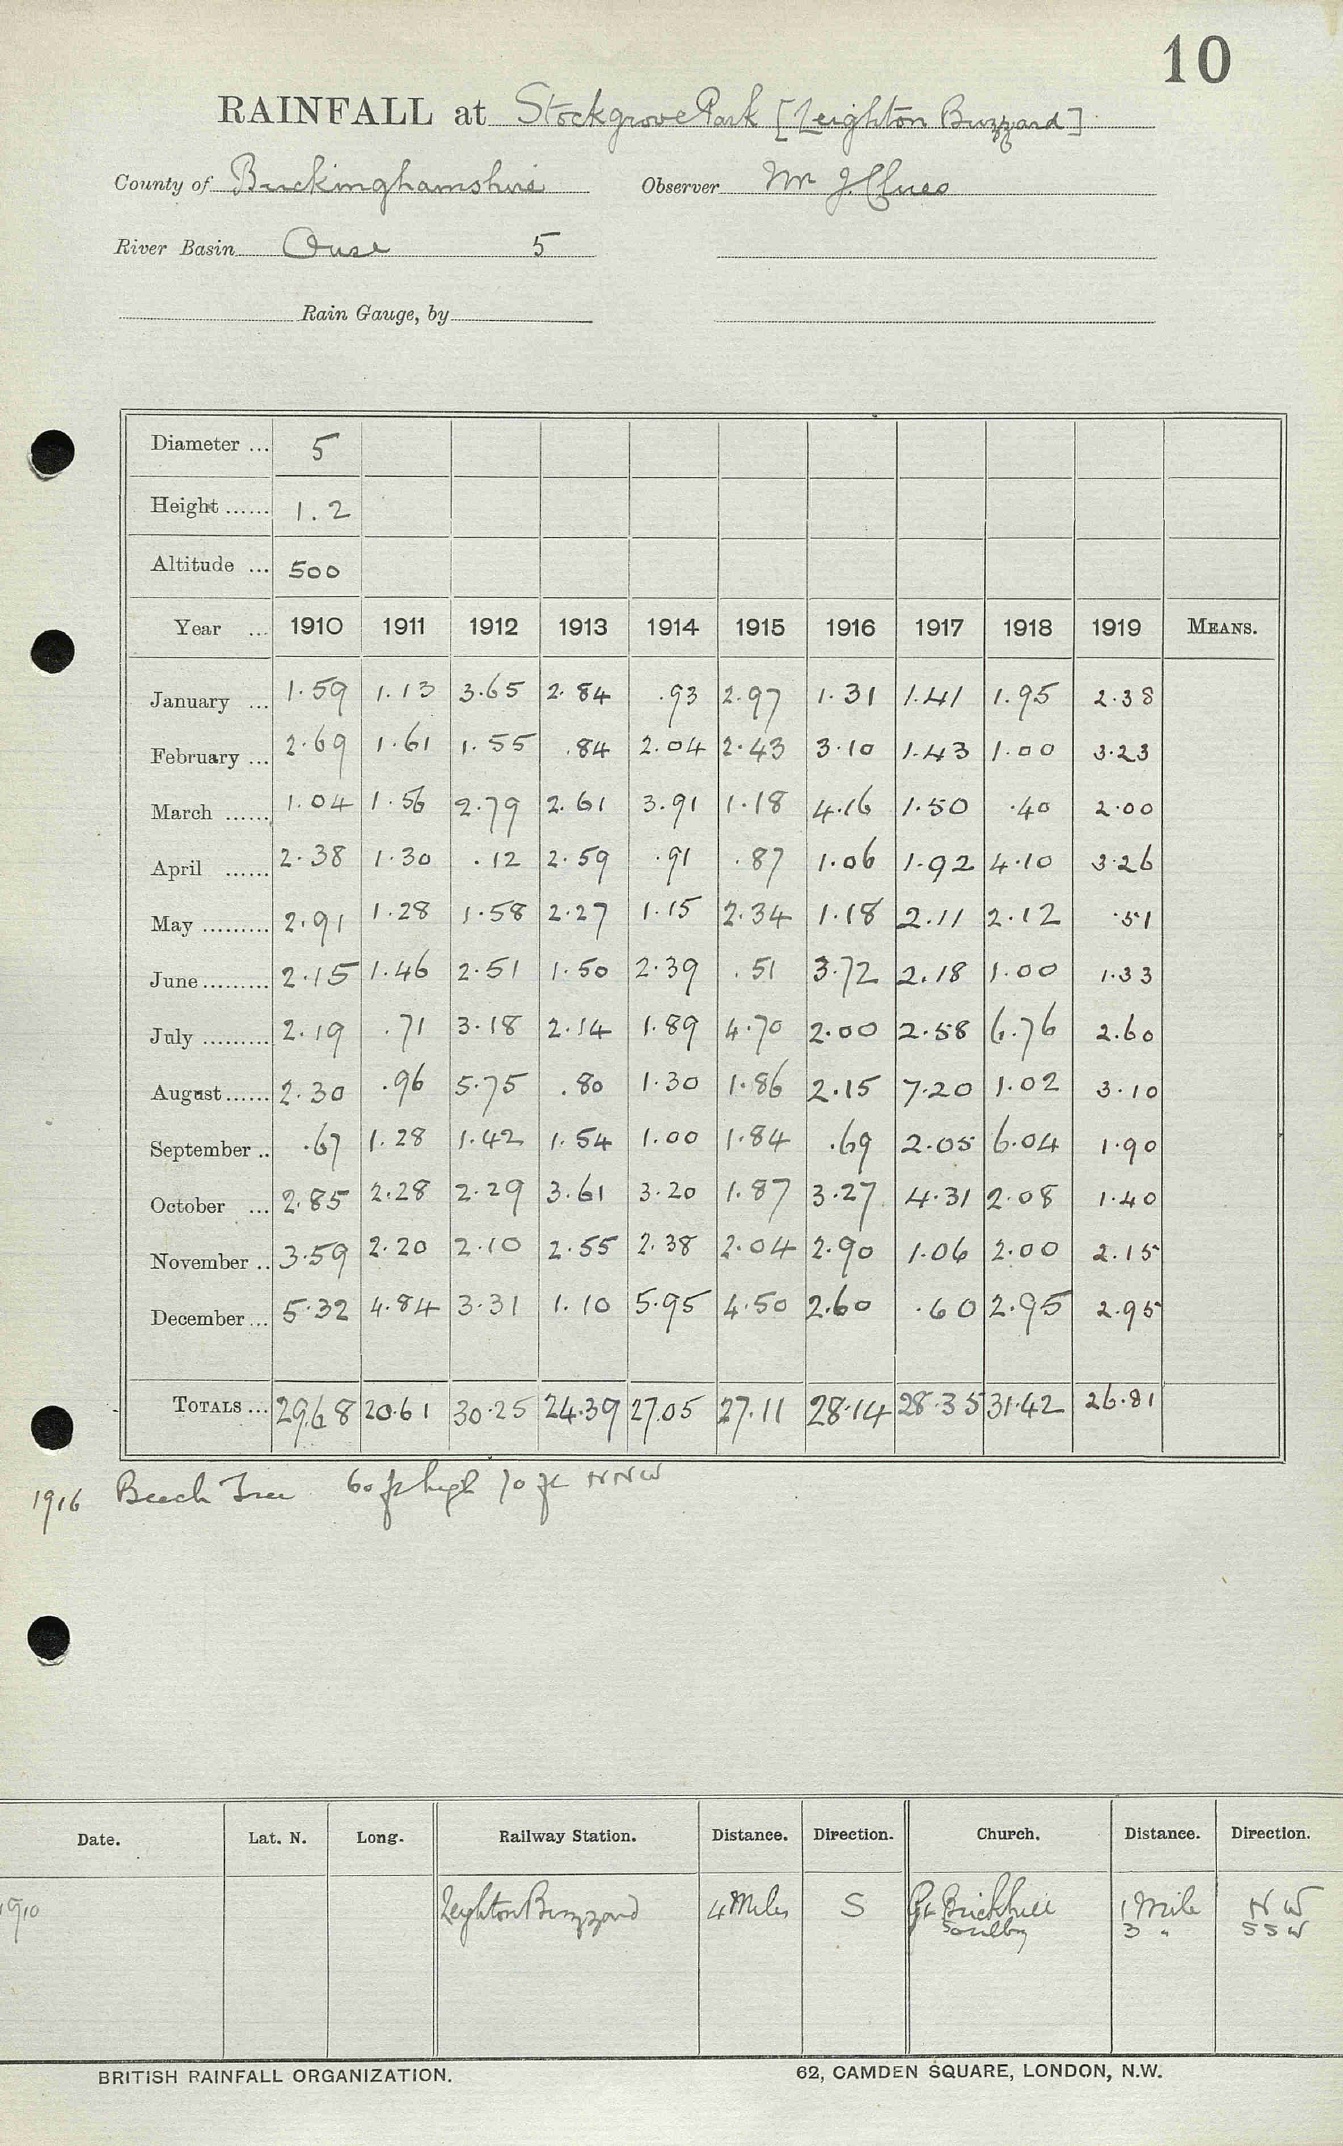 10
RAINFALL at Stockgrove Park [Leighton Buzzard]
County of Buckinghamshire Observer Mr J. Clues
River Basin Ouse 5
Rain Gauge, by
Diameter ... 5
Height ...... 1.2
Altitude ... 500
Year ... 1910 1911 1912 1913 1914 1915 1916 1917 1918 1919 MEANS.
January ... 1.59 1.13 3.65 2.84 .93 2.97 1.31 1.41 1.95 2.38
February ... 2.69 1.61 1.55 .84 2.04 2.43 3.10 1.43 1.00 3.23
March ...... 1.04 1.56 2.79 2.61 3.91 1.18 4.16 1.50 .40 2.00
April ...... 2.38 1.30 .12 2.59 .91 .87 1.06 1.92 4.10 3.26
May ......... 2.91 1.28 1.58 2.27 1.15 2.34 1.18 2.11 2.12 .51
June ......... 2.15 1.46 2.51 1.50 2.39 .51 3.72 2.18 1.00 1.33
July ......... 2.19 .71 3.18 2.14 1.89 4.70 2.00 2.58 6.76 2.60
August ...... 2.30 .96 5.75 .80 1.30 1.86 2.15 7.20 1.02 3.10
September .. .67 1.28 1.42 1.54 1.00 1.84 .69 2.05 6.04 1.90
October ... 2.85 2.28 2.29 3.61 3.20 1.87 3.27 4.31 2.08 1.40
November .. 3.59 2.20 2.10 2.55 2.38 2.04 2.90 1.06 2.00 2.15
December ... 5.32 4.84 3.31 1.10 5.95 4.50 2.60 .60 2.95 2.95
TOTALS ... 29.68 20.61 30.25 24.39 27.05 27.11 28.14 28.35 31.42 26.81
1916 Beech Tree 60 ft high 70 ft NNW
Date. Lat. N. Long. Railway Station. Distance. Direction. Church. Distance. Direction.
1910 Leighton Buzzard 4 Miles S Gt. Brickhill 1 Mile NW
Soulbury 3 " SSW
BRITISH RAINFALL ORGANIZATION. 62, CAMDEN SQUARE, LONDON, N.W.